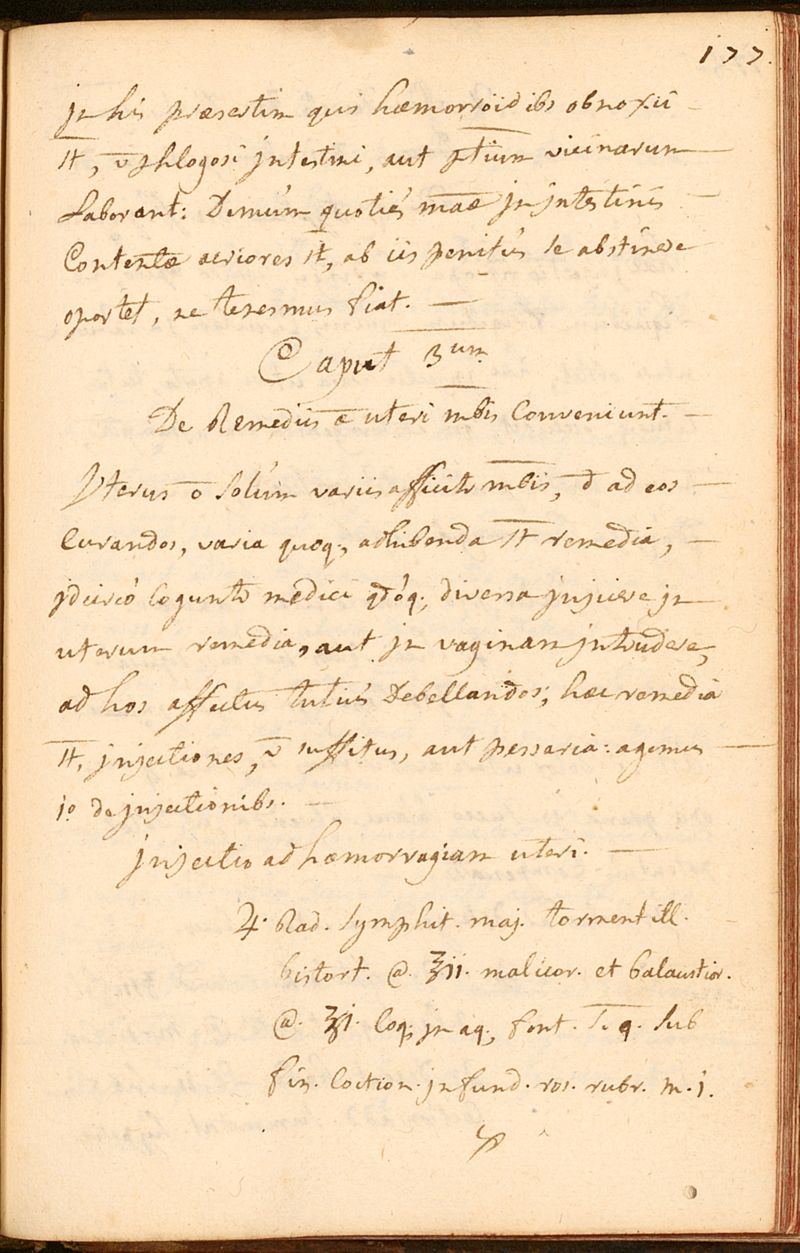 177.
jn his præsertim qui hæmorroidibs obnoxii
st̅, v̅ phlogosi jntestini, aut ptium vicinarum
laborant: Demùm quotiés maæ jn jntestinis
Contentæ acriores st̅, ab iis penitùs se abstinere
oportet, ne tenesmus fiat.
Caput 3um
De Remediis æ uteri mbis Conveniunt.
Vterus o̅ solùm variis afficitr mbis, d̅ ad eos
Curandos, varia quoq;, adhibenda st̅ remedia,
jdcircó Coguntr medici qdóq; diversa jnjicere jn
uterum remedia, aut jn vaginam jntrudere,
ad hos affectus tutiùs Debellandos; hæc remedia
st̅, jnjectiones, v̅ suffitus, aut pessaria: agemus
1o de jnjectionibs.
jnjectio ad hæmorragiam uteri.
♃. Rad. symphit. maj. tormentill.
bistort. @. ℥ii. malicor. et balaustior.
@. ℥i. Coq; jn aq; font. s. q. sub
fin. Coction. jnfund. ros. rubr. m. j.